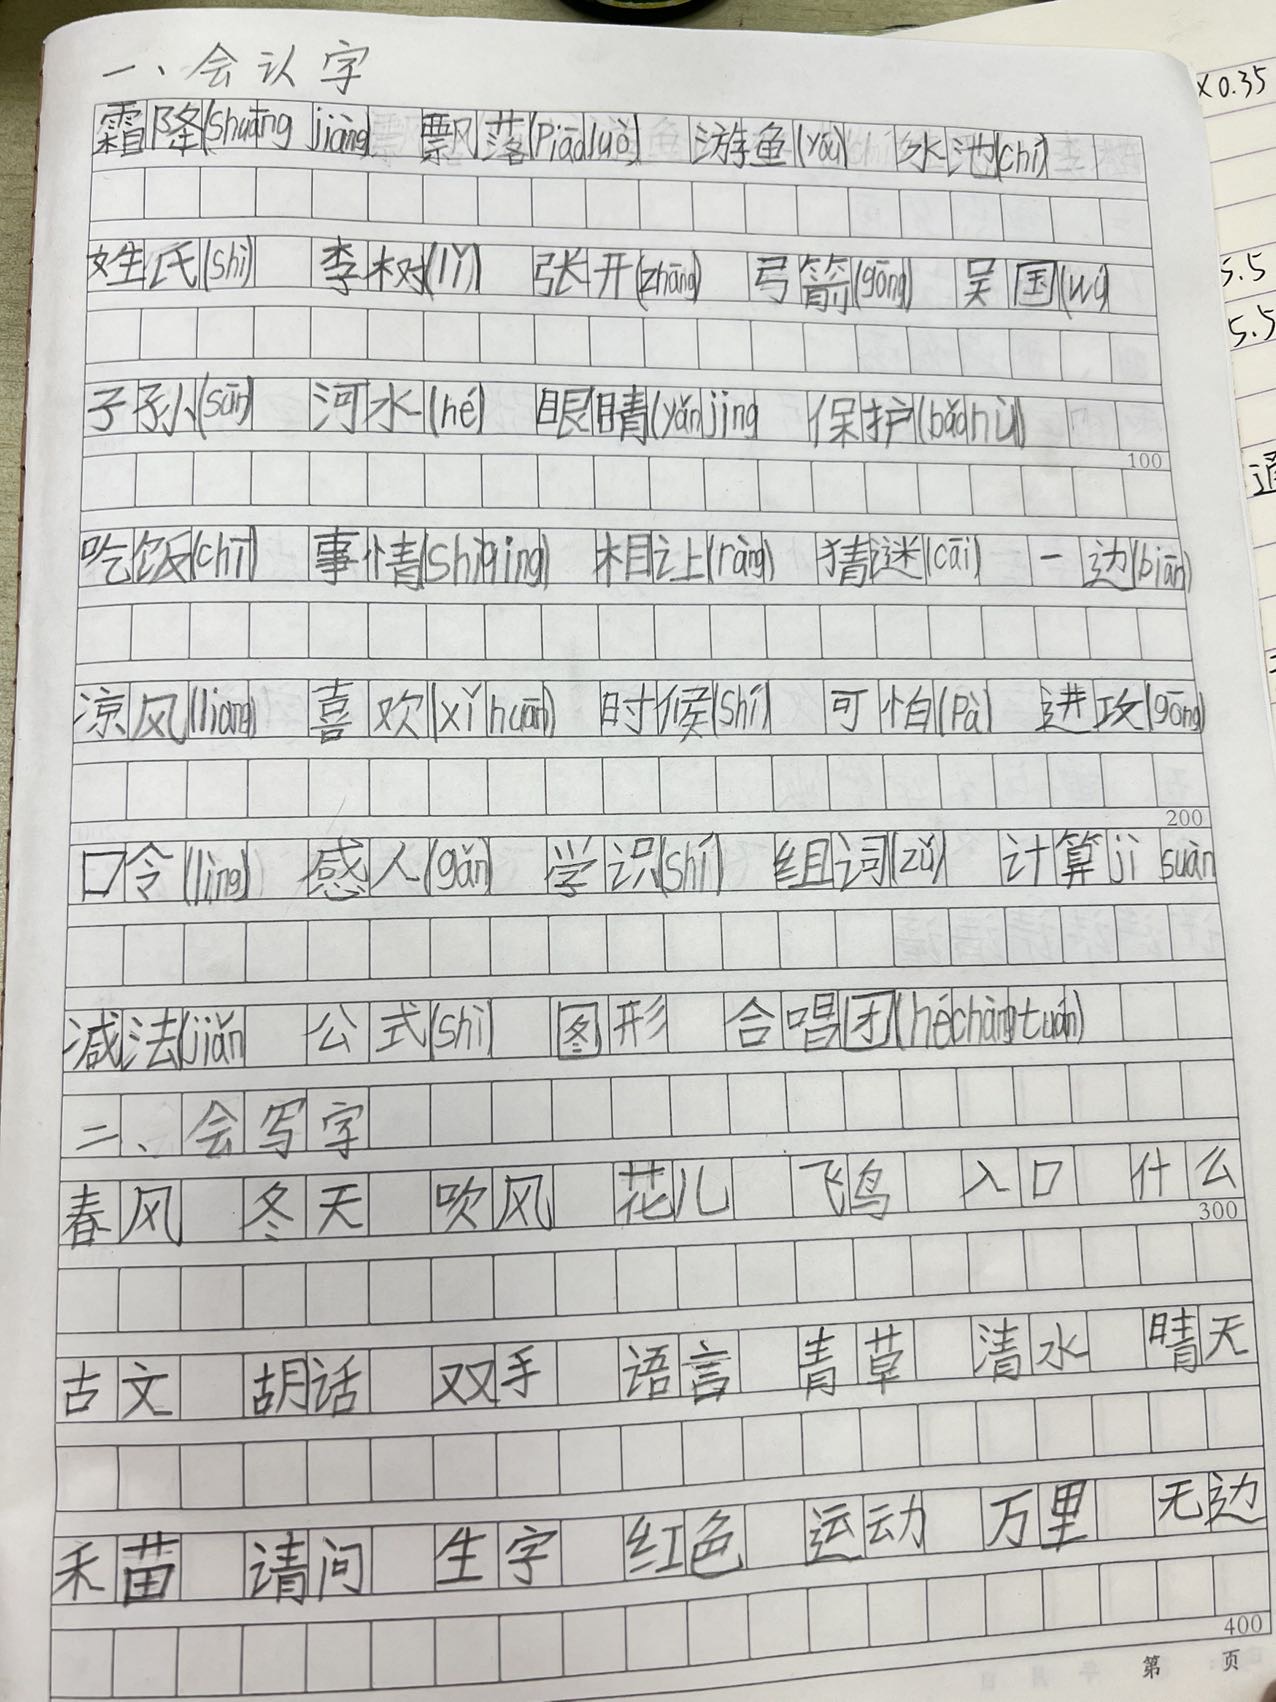 一、会认字
霜降(shuāng jiàng) 飘落(Piāoluò) 游鱼(yóu) 水池(chí)
姓氏(shì) 李树(lǐ) 张开(zhāng) 弓箭(gōng) 吴国(wú)
子孙(sūn) 河水(hé) 眼睛(yǎnjing 保护(bǎohù)
100
吃饭(chī) 事情(shìqing) 相让(ràng) 猜谜(cāi) 一边(biān)
凉风(liáng) 喜欢(xǐhuān) 时候(shí) 可怕(Pà) 进攻(gōng)
200
口令(lìng) 感人(gǎn) 学识(shí) 组词(zǔ) 计算jì suàn
减法(jiǎn 公式(shì) 图形 合唱团(héchàngtuán)
二、会写字
春风 冬天 吹风 花儿 飞鸟 入口 什么
300
古文 胡话 双手 语言 青草 清水 晴天
禾苗 请问 生字 红色 运动 万里 无边
400
第 页
×0.35
5.5
5.5